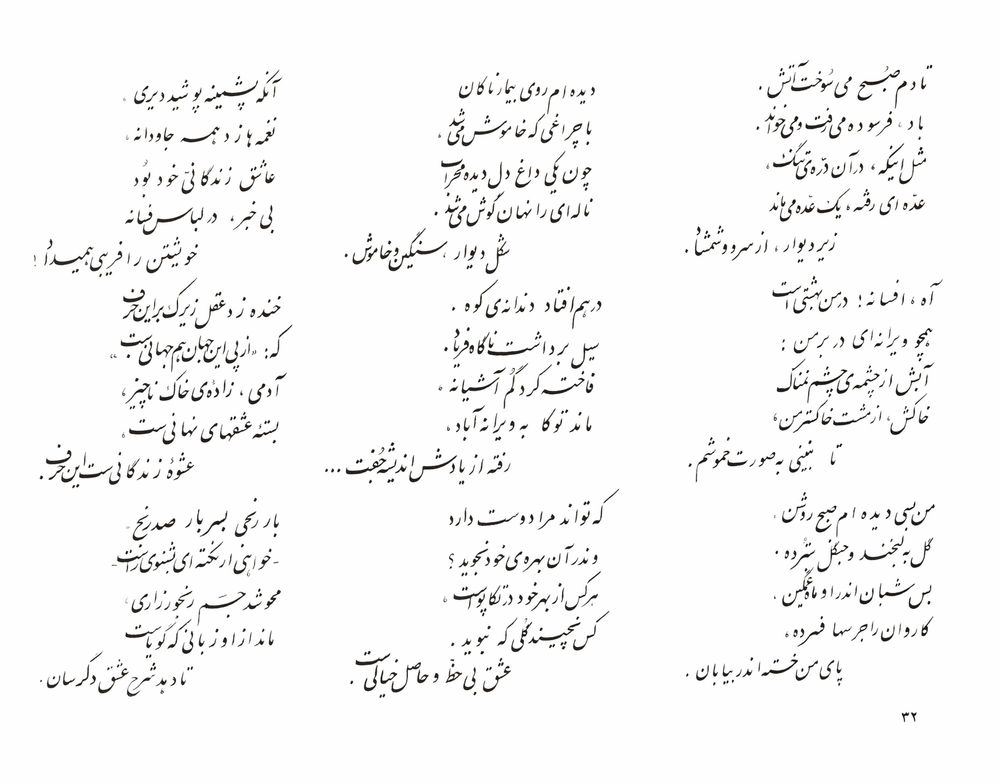 تا دم صبح می‌سوخت آتش.
باد، فرسوده می‌رفت و می‌خواند.
مثل اینکه، در آن دره‌ی تنگ،
عده‌ای رفته، یک عده می‌ماند
زیر دیوار، از سرو و شمشاد.
آه، افسانه! در من بهشتی است
همچو ویرانه‌ای در بر من:
آبش از چشمه‌ی چشم نمناک
خاکش، از مشت خاکستر من،
تا نبینی به صورت خموشم.
من بسی دیده‌ام صبح روشن،
گل به لبخند و جنگل سترده.
بس شبان اندر او ماه غمگین،
کاروان را جرسها فسرده،
پای من خسته اندر بیابان.
دیده‌ام روی بیمارناکان
با چراغی که خاموش می‌شد،
چون یکی داغ دل دیده محراب
ناله‌ای را نهان گوش می‌شد.
شکل دیوار، سنگین و خاموش.
درهم افتاد دندانه‌ی کوه.
سیل برداشت ناگاه فریاد.
فاخته کرد گم آشیانه،
ماند توکا به ویرانه آباد،
رفته از یادش اندیشه جفت...
که تواند مرا دوست دارد
وندر آن بهره‌ی خود نجوید؟
هر کس از بهر خود در تکاپوست،
کس نچیند گلی که نبوید.
عشق بی حظ و حاصل خیالی‌ست.
آنکه پشمینه پوشید دیری،
نغمه‌ها زد همه جاودانه،
عاشق زندگانی خود بود
بی‌خبر، در لباس فسانه
خویشتن را فریبی همیداد!
خنده زد عقل زیرک بر این حرف
که: «از پی این جهان هم جهانی‌ست»
آدمی، زاده‌ی خاک ناچیز،
بسته عشقهای نهانی‌ست،
عشوه زندگانی‌ست این حرف.
بار رنجی بسربار صد رنج،
-خواهی ار نکته‌ای بشنوی راست-
محو شد جسم رنجور زاری،
ماند از او زبانی که گویاست
تا دهد شرح عشق دگرسان.
۳۲